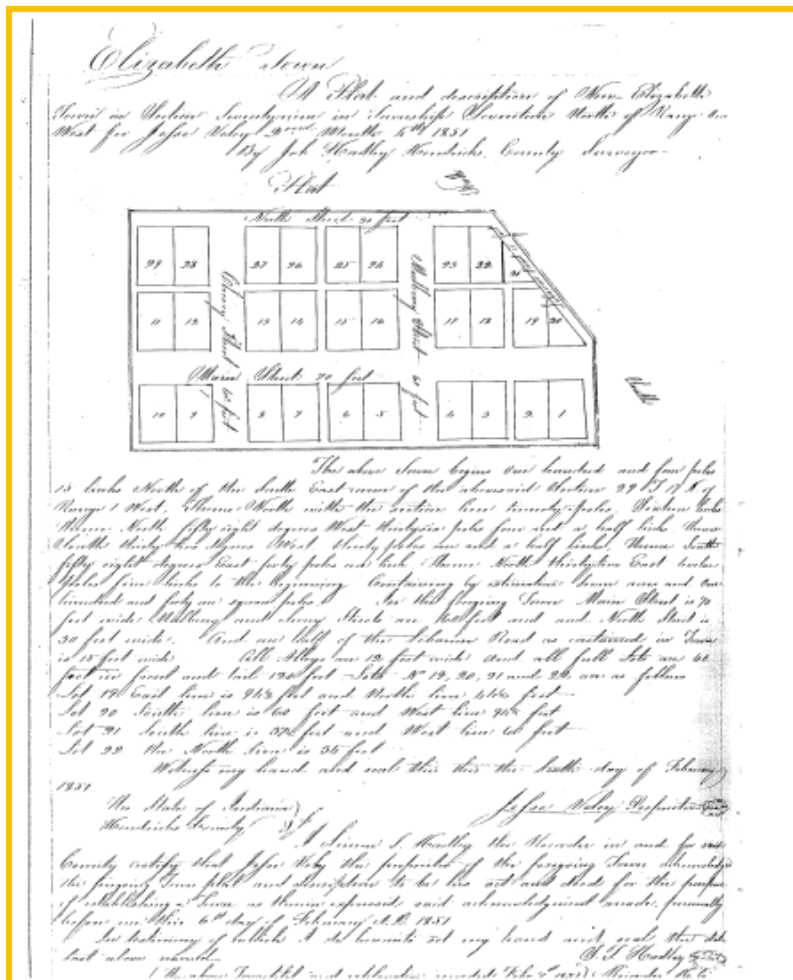 Elizabeth Town
A Plat and description of New Elizabeth
Town in Section Twentynine in Township Seventeen North of Range One
West for Jesse Veley 2nd Month 4th 1851
By Job Hadley Hendricks County Surveyor
Plat
North
North Street 30 feet
29 28 27 26 25 24 23 22 21
Cherry Street 60 feet
Mulberry Street 60 feet
11 12 13 14 15 16 17 18 19 20
Main Street 70 feet
South
10 9 8 7 6 5 4 3 2 1
The above Town begins one hundred and four poles
15 links North of the South East corner of the aforesaid Section 29 T 17 N of
Range 1 West, Thence North with the section line twenty poles, Sixteen links
Thence North fifty eight degrees West thirtysix poles four and a half links, Thence
South thirty two degrees West thirty poles one and a half links, Thence South
fifty eight degrees East forty poles one link, Thence North thirtytwo East twelve
poles five links to the Beginning Containing by estimation Seven acres and One
hundred and forty one square poles. In the forgoing Town Main Street is 70
feet wide Mulberry and Cherry Streets are 60 feet and and North Street is
30 feet wide. And one half of the Lebanon Road as contained in Town
is 15 feet wide All Alleys are 12 feet wide and all full Lots are 60
feet in front and back 120 feet Lots No 19, 20, 21 and 22 are as follows
Lot 19 East line is feet and North line feet
Lot 20 South line is 60 feet and West line feet
Lot 21 South line is feet and West line feet
Lot 22 the North line is feet
Witness my hand and seal this this the Sixth day of February
1851
Jesse Veley Proprietor
The State of Indiana
Hendricks County
I Simon T. Hadley the Recorder in and for said
County certify that Jesse Veley the proprietor of the forgoing Town acknowledged
the forgoing Town plat and description to be his act and deed for the purpose
of establishing a Town as therein expressed said acknowledgment made personally
before me this 6th day of February A.D. 1851
In testimony of which I do hereunto set my hand and seal the date
last above named.
S. T. Hadley
The above Town plat and was recorded Feb 1851 Recorder